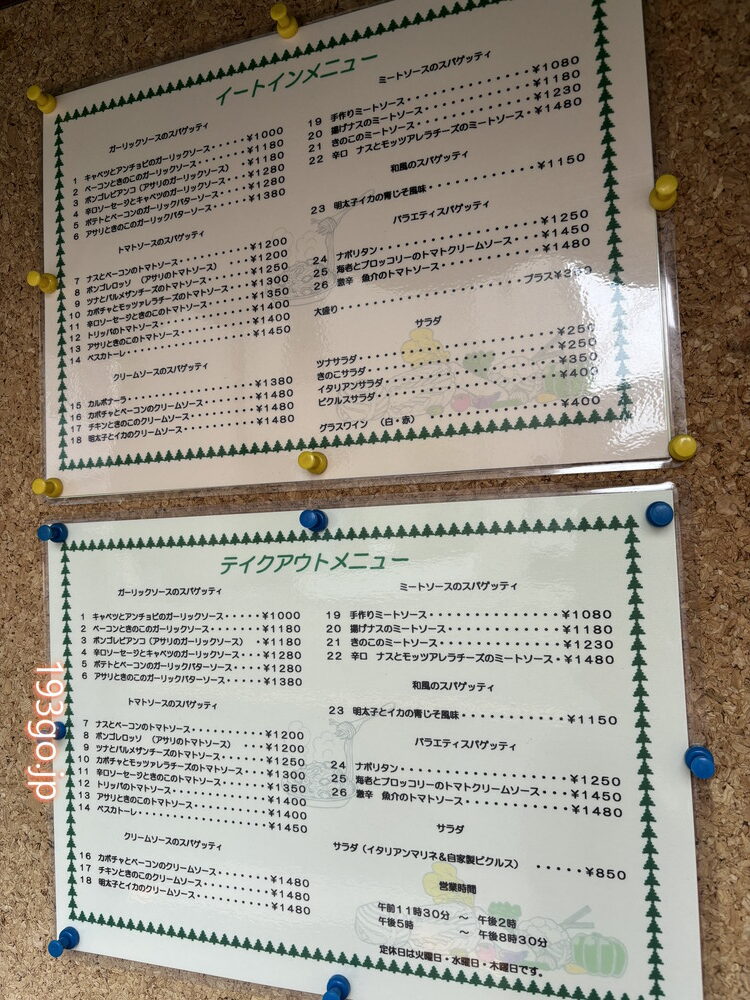 イートインメニュー
ガーリックソースのスパゲッティ
1 キャベツとアンチョビのガーリックソース・・・・・¥1000
2 ベーコンときのこのガーリックソース・・・・・・¥1180
3 ボンゴレビアンコ（アサリのガーリックソース）・¥1180
4 辛口ソーセージとキャベツのガーリックソース・・¥1280
5 ポテトとベーコンのガーリックバターソース・・・¥1280
6 アサリときのこのガーリックバターソース・・・・¥1380
トマトソースのスパゲッティ
7 ナスとベーコンのトマトソース・・・・・・・・¥1200
8 ボンゴレロッソ （アサリのトマトソース） ・・・¥1200
9 ツナとパルメザンチーズのトマトソース・・・・・¥1250
10 カボチャとモッツァレラチーズのトマトソース・・¥1300
11 辛口ソーセージときのこのトマトソース・・・・・¥1350
12 トリッパのトマトソース・・・・・・・・・・・¥1400
13 アサリときのこのトマトソース・・・・・・・・¥1400
14 ペスカトーレ・・・・・・・・・・・・・・・・¥1450
クリームソースのスパゲッティ
15 カルボナーラ・・・・・・・・・・・・・・・・¥1380
16 カボチャとベーコンのクリームソース・・・・・・¥1480
17 チキンときのこのクリームソース・・・・・・・・¥1480
18 明太子とイカのクリームソース・・・・・・・・・¥1480
ミートソースのスパゲッティ
19 手作りミートソース・・・・・・・・・・・・・¥1080
20 揚げナスのミートソース・・・・・・・・・・・¥1180
21 きのこのミートソース・・・・・・・・・・・・¥1230
22 辛口 ナスとモッツアレラチーズのミートソース・¥1480
和風のスパゲッティ
23 明太子イカの青じそ風味・・・・・・・・・・・¥1150
バラエティスパゲッティ
24 ナポリタン・・・・・・・・・・・・・・・・・¥1250
25 海老とブロッコリーのトマトクリームソース・・・¥1450
26 激辛 魚介のトマトソース・・・・・・・・・・・¥1480
大盛り・・・・・・・・・・・・・・・・・プラス
サラダ
ツナサラダ・・・・・・・・・・・・・・・・・・¥250
きのこサラダ・・・・・・・・・・・・・・・・・¥250
イタリアンサラダ・・・・・・・・・・・・・・・¥350
ピクルスサラダ・・・・・・・・・・・・・・・・¥400
グラスワイン （白・赤） ・・・・・・・・・・・・¥400
テイクアウトメニュー
ガーリックソースのスパゲッティ
1 キャベツとアンチョビのガーリックソース・・・・・¥1000
2 ベーコンときのこのガーリックソース・・・・・・¥1180
3 ボンゴレビアンコ（アサリのガーリックソース） ・¥1180
4 辛口ソーセージとキャベツのガーリックソース・・¥1280
5 ポテトとベーコンのガーリックバターソース・・・¥1280
6 アサリときのこのガーリックバターソース・・・・¥1380
トマトソースのスパゲッティ
7 ナスとベーコンのトマトソース・・・・・・・・¥1200
8 ボンゴレロッソ （アサリのトマトソース） ・・・¥1200
9 ツナとパルメザンチーズのトマトソース・・・・・¥1250
10 カボチャとモッツァレラチーズのトマトソース・・¥1300
11 辛口ソーセージときのこのトマトソース・・・・・¥1350
12 トリッパのトマトソース・・・・・・・・・・・¥1400
13 アサリときのこのトマトソース・・・・・・・・¥1400
14 ペスカトーレ・・・・・・・・・・・・・・・・¥1450
クリームソースのスパゲッティ
16 カボチャとベーコンのクリームソース・・・・・・¥1480
17 チキンときのこのクリームソース・・・・・・・・¥1480
18 明太子とイカのクリームソース・・・・・・・・・¥1480
ミートソースのスパゲッティ
19 手作りミートソース・・・・・・・・・・・・・¥1080
20 揚げナスのミートソース・・・・・・・・・・・¥1180
21 きのこのミートソース・・・・・・・・・・・・¥1230
22 辛口 ナスとモッツアレラチーズのミートソース・¥1480
和風のスパゲッティ
23 明太子とイカの青じそ風味・・・・・・・・・・¥1150
バラエティスパゲッティ
24 ナポリタン・・・・・・・・・・・・・・・・・¥1250
25 海老とブロッコリーのトマトクリームソース・・・¥1450
26 激辛 魚介のトマトソース・・・・・・・・・・・¥1480
サラダ
サラダ（イタリアンマリネ＆自家製ピクルス） ・・・・・¥850
営業時間
午前11時30分 ～ 午後2時
午後5時 ～ 午後8時30分
定休日は火曜日・水曜日・木曜日です。
193go.jp